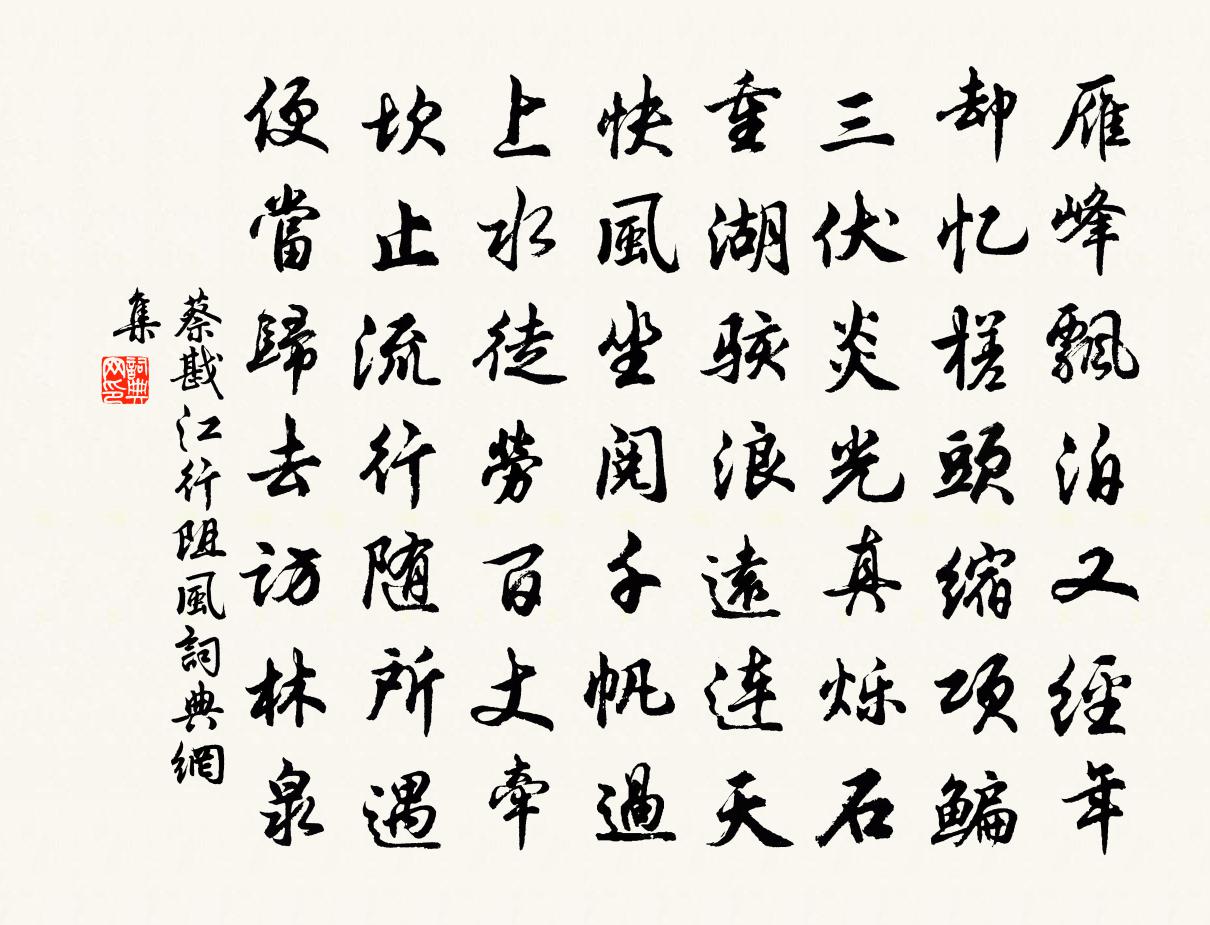 雁峰飄泊又經年
却忆槎頭缩项鳊
三伏炎光真烁石
重湖骇浪遠連天
快風坐閱千帆過
上水徒勞百丈牽
坎止流行随所遇
便當歸去访林泉
蔡戡江行阻風詞典網
集
詞典网印